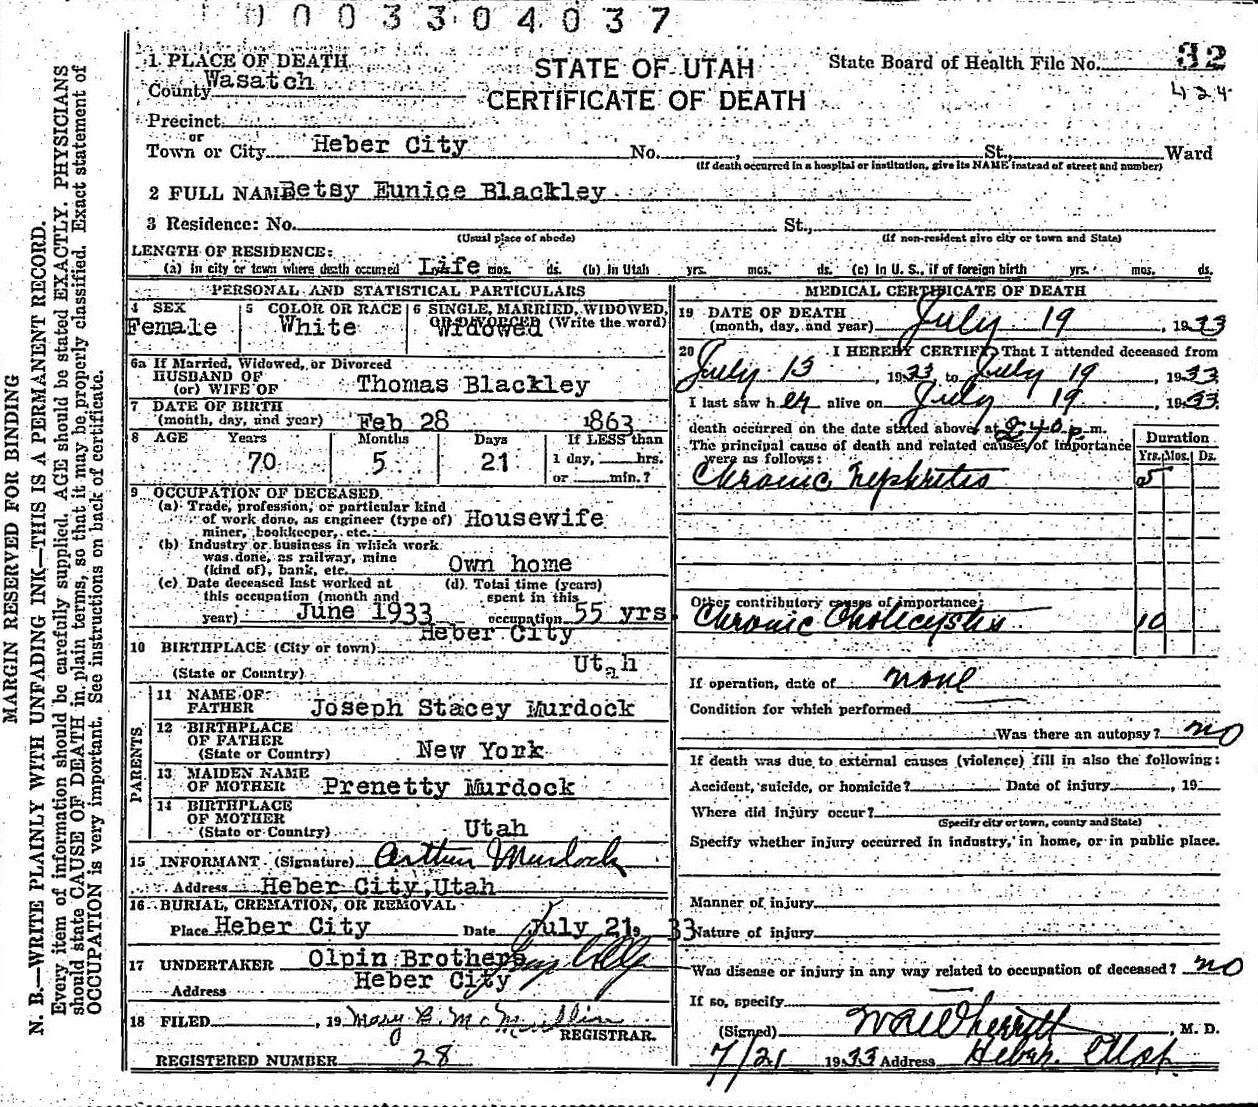 0003304037
1 PLACE OF DEATH
County Wasatch
STATE OF UTAH
CERTIFICATE OF DEATH
State Board of Health File No. 32
424
Precinct
or
Town or City Heber City No. St., Ward
(If death occurred in a hospital or institution, give its NAME instead of street and number)
2 FULL NAME Betsy Eunice Blackley
3 Residence: No. St.,
(Usual place of abode) (If non-resident give city or town and State)
LENGTH OF RESIDENCE:
(a) in city or town where death occurred Life mos. ds. (b) In Utah yrs. mos. ds. (c) In U. S., if of foreign birth yrs. mos. ds.
PERSONAL AND STATISTICAL PARTICULARS
4 SEX
Female
5 COLOR OR RACE
White
6 SINGLE, MARRIED, WIDOWED,
OR DIVORCED (Write the word)
Widowed
6a If Married, Widowed, or Divorced
HUSBAND OF
(or) WIFE OF Thomas Blackley
7 DATE OF BIRTH
(month, day, and year) Feb 28 1863
8 AGE Years Months Days If LESS than
70 5 21 1 day, hrs.
or min.?
9 OCCUPATION OF DECEASED
(a) Trade, profession, or particular kind
of work done, as engineer (type of) Housewife
miner, bookkeeper, etc.
(b) Industry or business in which work
was done, as railway, mine
(kind of), bank, etc. Own home
(c) Date deceased last worked at
this occupation (month and
year) June 1933
(d) Total time (years)
spent in this
occupation 55 yrs
10 BIRTHPLACE (City or town) Heber City
(State or Country) Utah
PARENTS
11 NAME OF
FATHER Joseph Stacey Murdock
12 BIRTHPLACE
OF FATHER
(State or Country) New York
13 MAIDEN NAME
OF MOTHER Prenetty Murdock
14 BIRTHPLACE
OF MOTHER
(State or Country) Utah
15 INFORMANT (Signature) Arthur Murdock
Address Heber City, Utah
16 BURIAL, CREMATION, OR REMOVAL
Place Heber City Date July 21 19 33
17 UNDERTAKER Olpin Brothers
Address Heber City
18 FILED , 19 Mary B. McMullin
REGISTRAR.
REGISTERED NUMBER 28
MEDICAL CERTIFICATE OF DEATH
19 DATE OF DEATH
(month, day, and year) July 19, 1933
20 I HEREBY CERTIFY That I attended deceased from
July 13, 1933 to July 19, 1933
I last saw her alive on July 19, 1933
death occurred on the date stated above at 8:40 p. m.
The principal cause of death and related causes of importance
were as follows:
Duration
Yrs. Mos. Ds.
Chronic Nephritis 5
Other contributory causes of importance:
Chronic Cholecystis 10
If operation, date of none
Condition for which performed
Was there an autopsy? no
If death was due to external causes (violence) fill in also the following:
Accident, suicide, or homicide? Date of injury , 19
Where did injury occur?
(Specify city or town, county and State)
Specify whether injury occurred in industry, in home, or in public place.
Manner of injury
Nature of injury
Was disease or injury in any way related to occupation of deceased? no
If so, specify
(Signed) , M. D.
7/21 1933 Address Heber, Utah
MARGIN RESERVED FOR BINDING
N. B.—WRITE PLAINLY WITH UNFADING INK—THIS IS A PERMANENT RECORD.
Every item of information should be carefully supplied. AGE should be stated EXACTLY. PHYSICIANS
should state CAUSE OF DEATH in plain terms, so that it may be properly classified. Exact statement of
OCCUPATION is very important. See instructions on back of certificate.